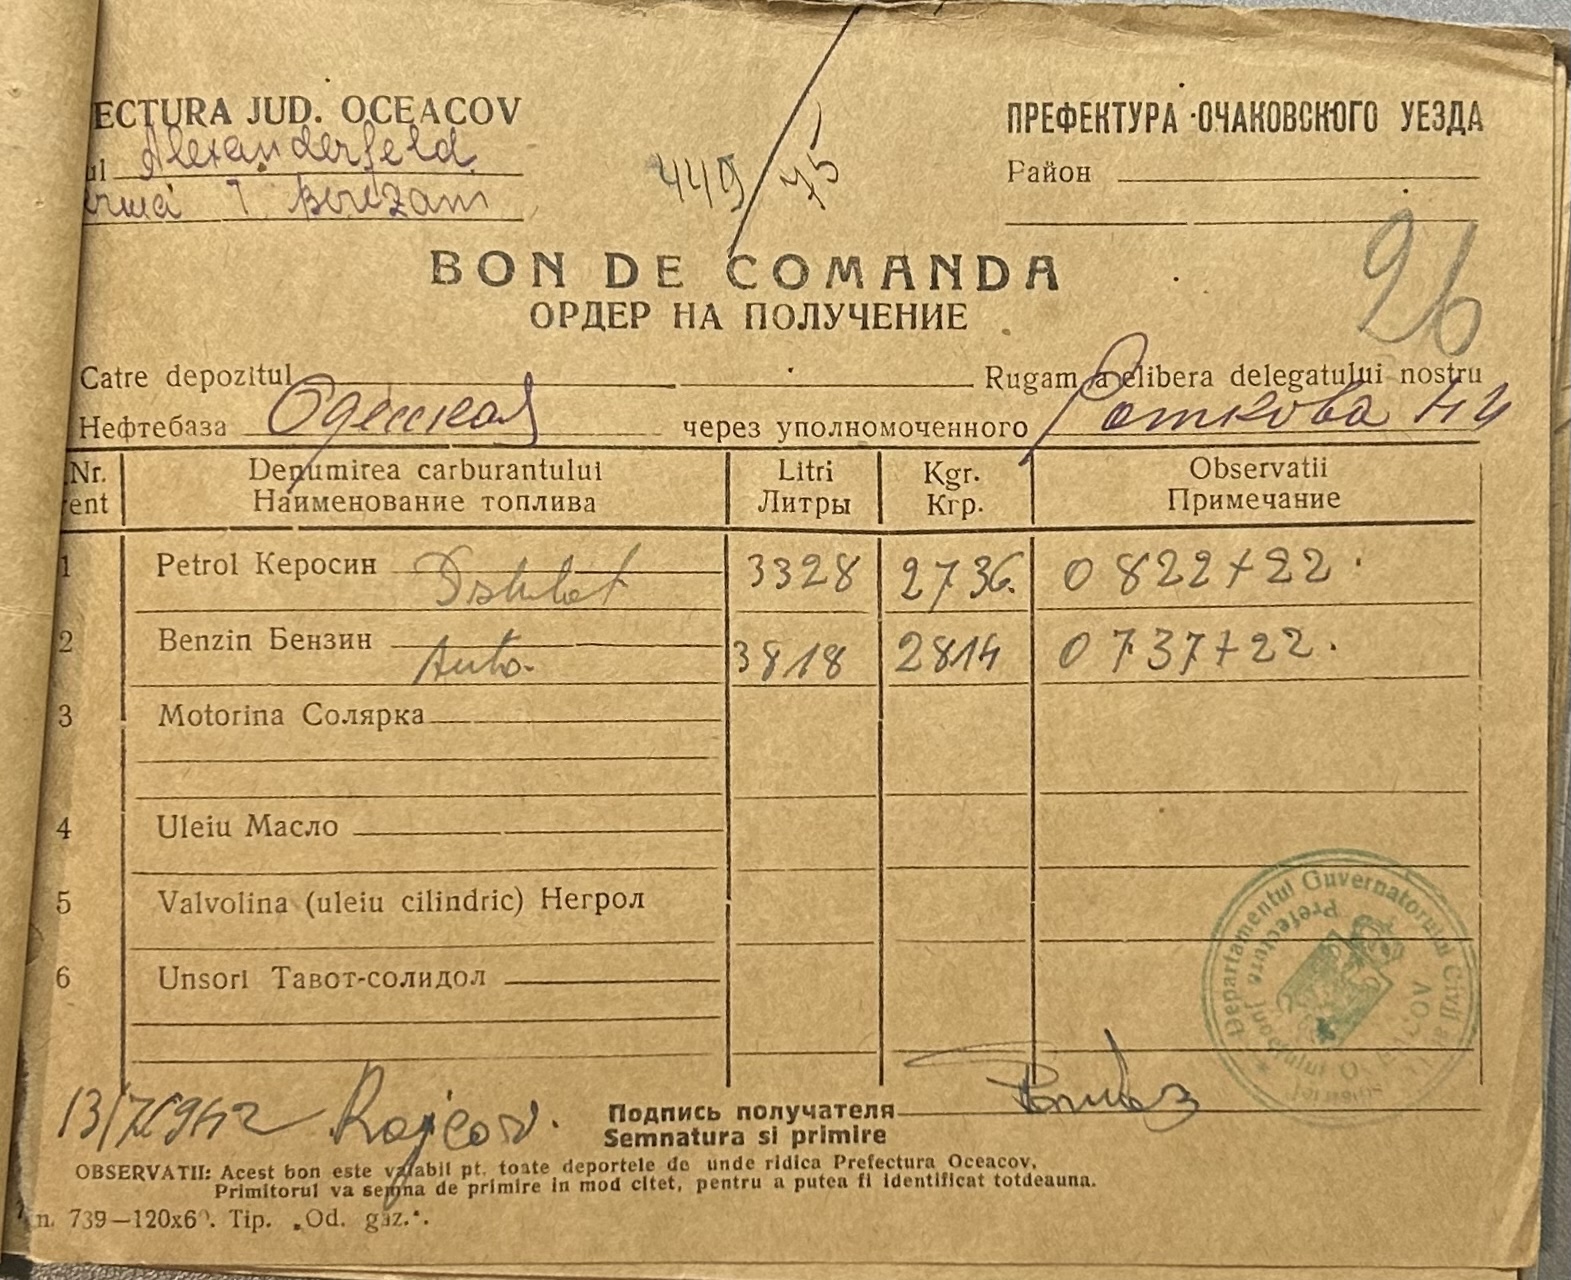 ECTURA JUD. OCEACOV
ПРЕФЕКТУРА ОЧАКОВСКОГО УЕЗДА
ul Alexanderfeld
449/75
Район
Berezani
26
BON DE COMANDA
ОРДЕР НА ПОЛУЧЕНИЕ
Catre depozitul Rugam a elibera delegatului nostru
Нефтебаза Одесская через уполномоченного Роткова Н И
Nr. Denumirea carburantului Litri Kgr. Observatii
rent Наименование топлива Литры Кгр. Примечание
1 Petrol Керосин 3328 2736. 0822+22.
2 Benzin Бензин Auto. 3818 2814 0737+22.
3 Motorina Солярка
4 Uleiu Масло
5 Valvolina (uleiu cilindric) Негрол
6 Unsori Тавот-солидол
Departamentul Guvernatorului Civil
Prefectura Județului
13/X 1942 Rajcov. Подпись получателя
Semnatura si primire
OBSERVATII: Acest bon este valabil pt. toate deportele de unde ridica Prefectura Oceacov.
Primitorul va semna de primire in mod citet, pentru a putea fi identificat totdeauna.
n. 739—120x6 . Tip. „Od. gaz.".